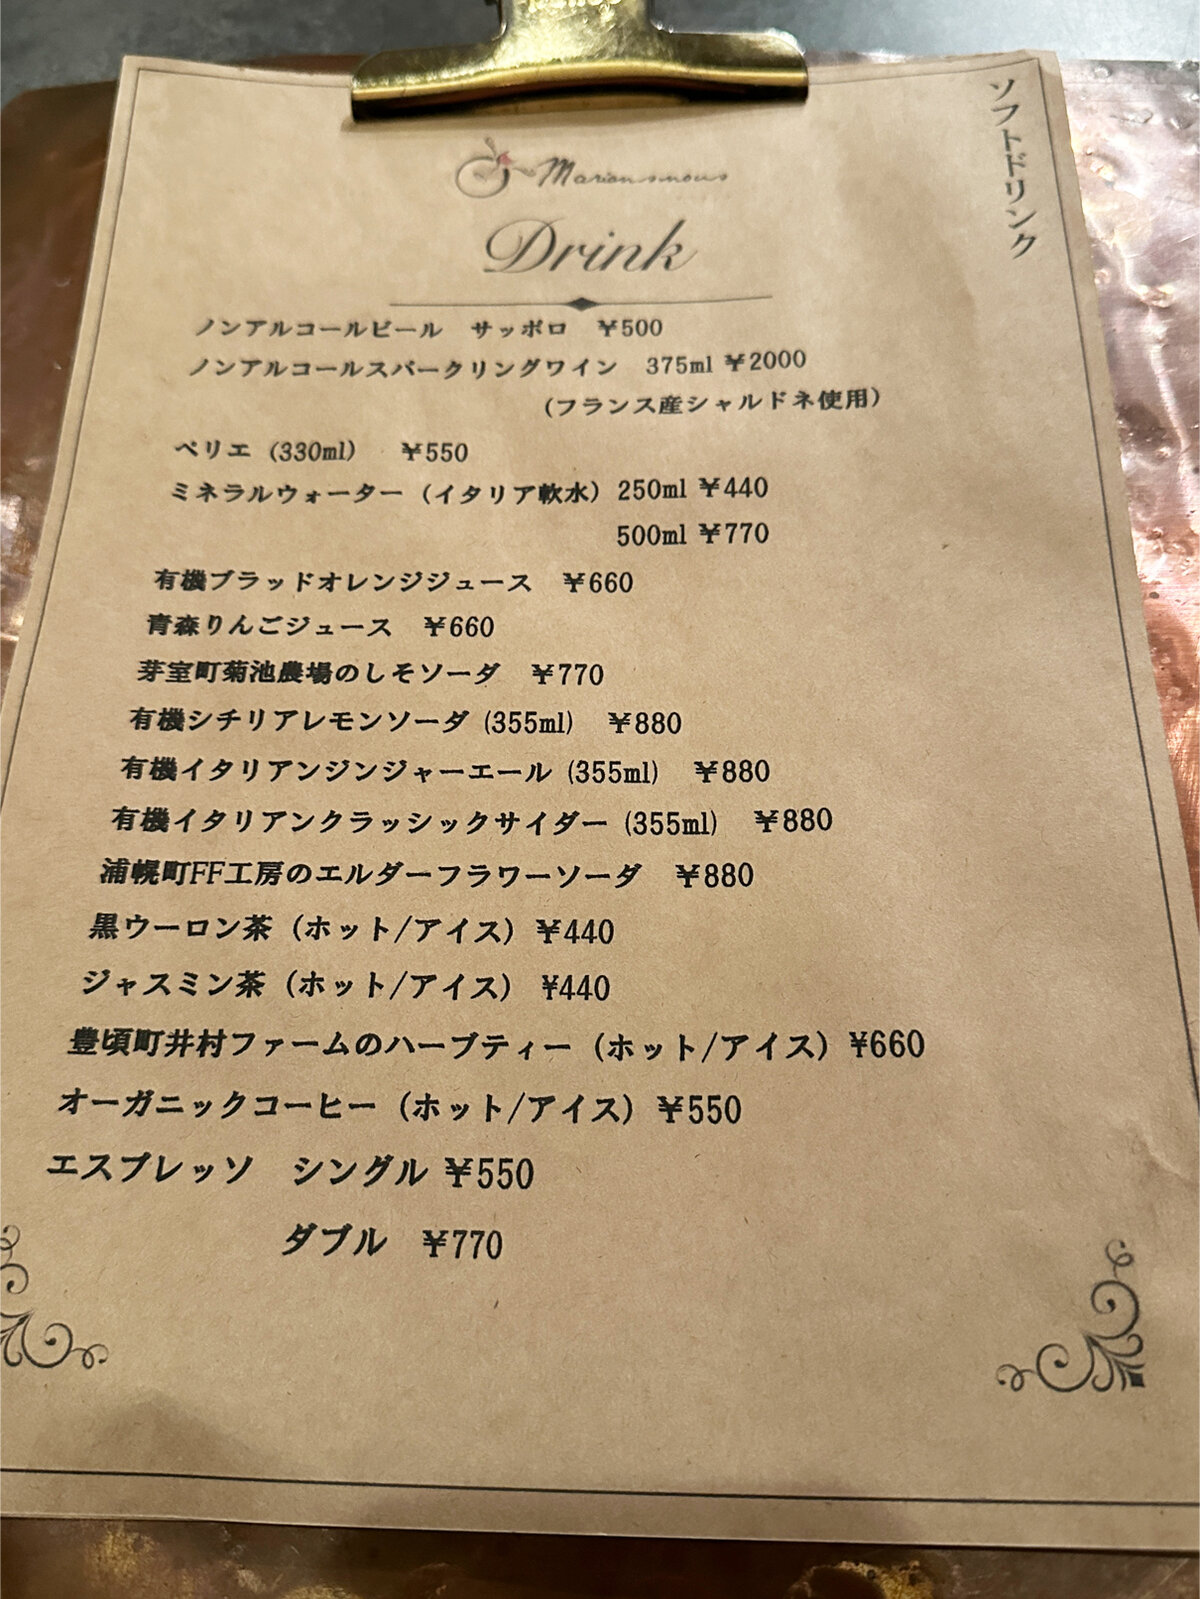 ソフトドリンク
Marionsnous
Drink
ノンアルコールビール　サッポロ　¥500
ノンアルコールスパークリングワイン　375ml ¥2000
(フランス産シャルドネ使用)
ペリエ (330ml)　¥550
ミネラルウォーター (イタリア軟水) 250ml ¥440
500ml ¥770
有機ブラッドオレンジジュース　¥660
青森りんごジュース　¥660
芽室町菊池農場のしそソーダ　¥770
有機シチリアレモンソーダ (355ml)　¥880
有機イタリアンジンジャーエール (355ml)　¥880
有機イタリアンクラッシックサイダー (355ml)　¥880
浦幌町FF工房のエルダーフラワーソーダ　¥880
黒ウーロン茶 (ホット/アイス) ¥440
ジャスミン茶 (ホット/アイス) ¥440
豊頃町井村ファームのハーブティー (ホット/アイス) ¥660
オーガニックコーヒー (ホット/アイス) ¥550
エスプレッソ　シングル ¥550
ダブル　¥770